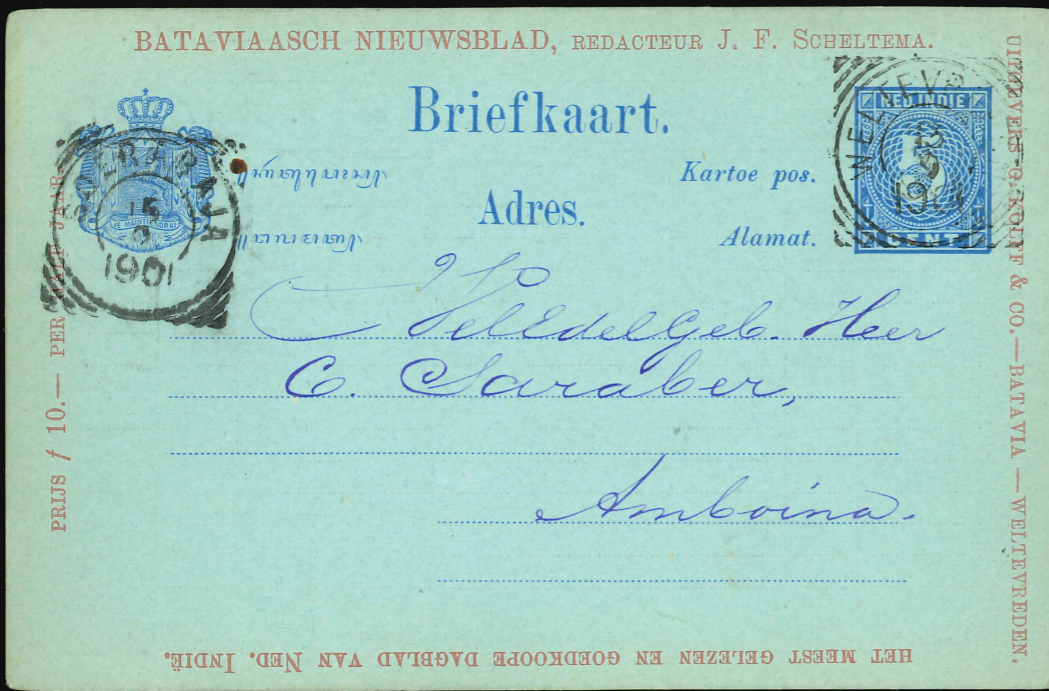 BATAVIAASCH NIEUWSBLAD, REDACTEUR J. F. SCHELTEMA.
Briefkaart.
Kartoe pos.
Adres.
Alamat.
NED. INDIE
5
CENT
WELTEVR
13
1901
15
1901
JE MAINTIENDRAI
WelEdelGeb. Heer
C. Saraber,
Amboina.
PRIJS f 10.— PER HALF JAAR.
UITGEVERS G. KOLFF & CO.—BATAVIA — WELTEVREDEN.
HET MEEST GELEZEN EN GOEDKOOPE DAGBLAD VAN NED. INDIË.